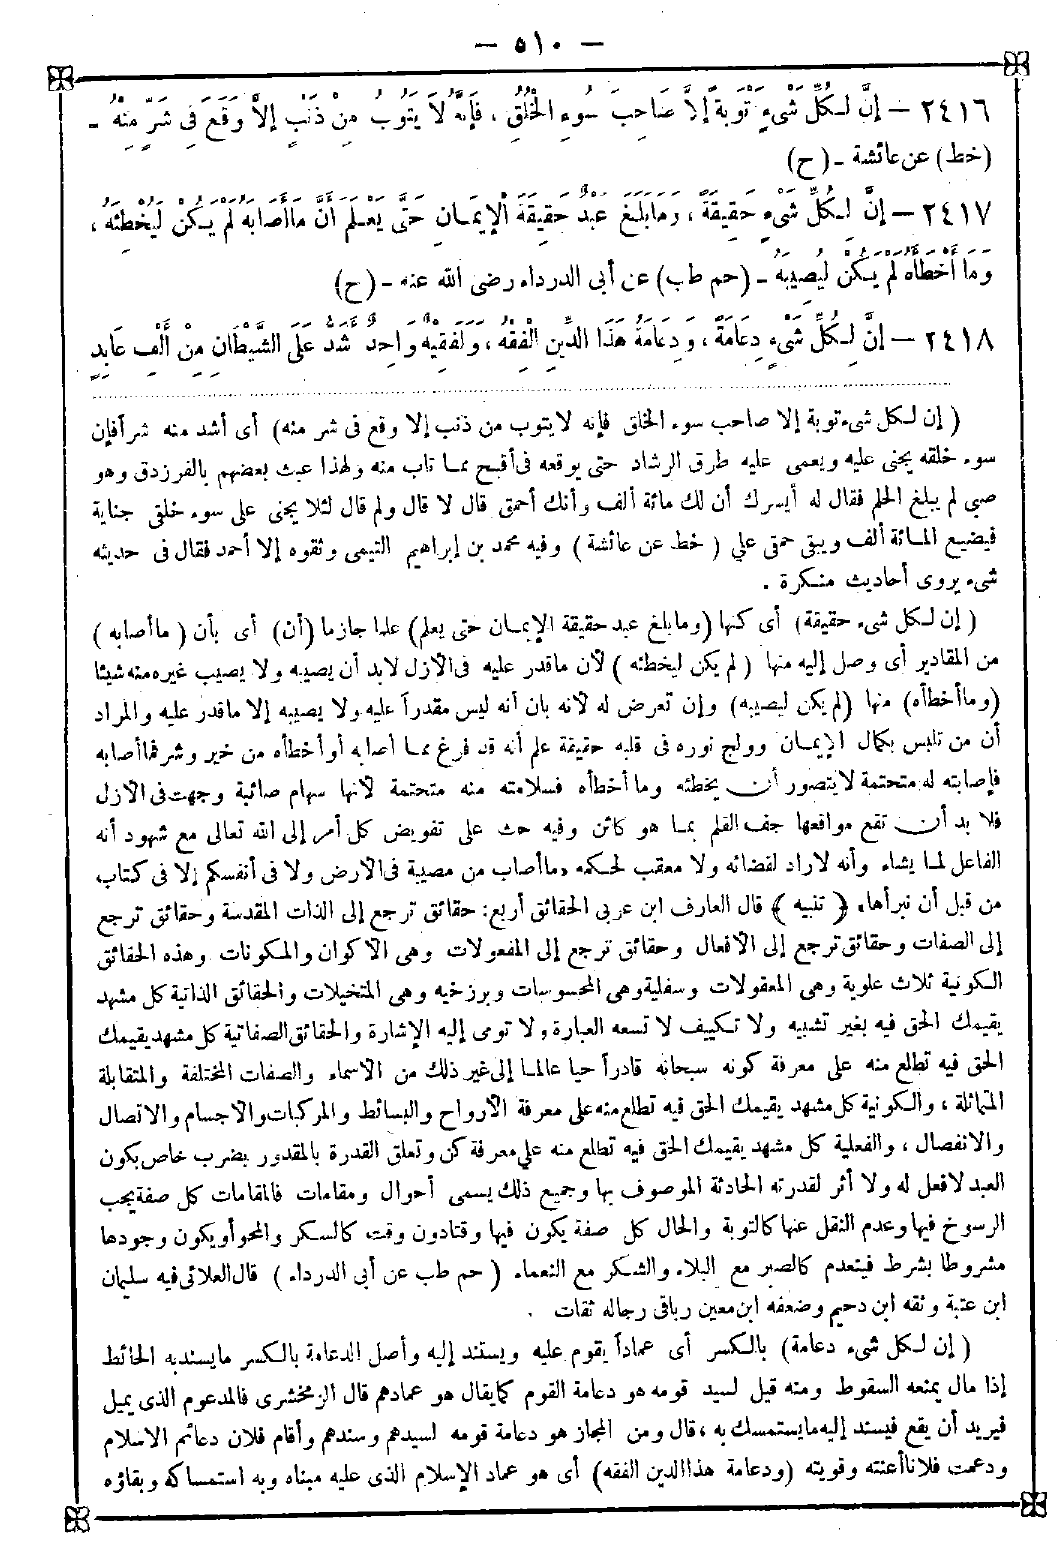 — ٥١٠ —
٢٤١٦ — إِنَّ لِكُلِّ شَيْءٍ تَوْبَةً إِلَّا صَاحِبَ سُوءِ الْخُلُقِ ، فَإِنَّهُ لَا يَتُوبُ مِنْ ذَنْبٍ إِلَّا وَقَعَ فِي شَرٍّ مِنْهُ -
(خط) عن عائشة - (ح)
٢٤١٧ — إِنَّ لِكُلِّ شَيْءٍ حَقِيقَةً ، وَمَا بَلَغَ عَبْدٌ حَقِيقَةَ الْإِيمَانِ حَتَّى يَعْلَمَ أَنَّ مَا أَصَابَهُ لَمْ يَكُنْ لِيُخْطِئَهُ ،
وَمَا أَخْطَأَهُ لَمْ يَكُنْ لِيُصِيبَهُ - (حم طب) عن أبى الدرداء رضى الله عنه - (ح)
٢٤١٨ — إِنَّ لِكُلِّ شَيْءٍ دِعَامَةً ، وَدِعَامَةُ هَذَا الدِّينِ الْفِقْهُ ، وَلَفَقِيهٌ وَاحِدٌ أَشَدُّ عَلَى الشَّيْطَانِ مِنْ أَلْفِ عَابِدٍ
( إن لكل شىء توبة إلا صاحب سوء الخلق فإنه لا يتوب من ذنب إلا وقع فى شر منه) أى أشد منه شراً فإن
سوء خلقه يجنى عليه ويعمى عليه طرق الرشاد حتى يوقعه فى أقبح مما تاب منه ولهذا عبث بعضهم بالفرزدق وهو
صبى لم يبلغ الحلم فقال له أيسرك أن لك مائة ألف وأنك أحمق قال لا قال ولم قال لئلا يجنى على سوء خلقى جناية
فيضيع المائة ألف ويبقى حمقى علي ( خط عن عائشة ) وفيه محمد بن إبراهيم التيمى وثقوه إلا أحمد فقال فى حديثه
شىء يروى أحاديث منكرة .
( إن لكل شىء حقيقة) أى كنها (وما بلغ عبد حقيقة الإيمان حتى يعلم) علما جازما (أن) أى بأن ( ما أصابه )
من المقادير أى وصل إليه منها ( لم يكن ليخطئه ) لأن ما قدر عليه فى الأزل لابد أن يصيبه ولا يصيب غيره منه شيئا
(وما أخطأه) منها (لم يكن ليصيبه) وإن تعرض له لأنه بان أنه ليس مقدراً عليه ولا يصيبه إلا ما قدر عليه والمراد
أن من تلبس بكمال الإيمان وولج نوره فى قلبه حقيقة علم أنه قد فرغ مما أصابه أو أخطأه من خير وشر فما أصابه
فإصابته له متحتمة لا يتصور أن يخطئه وما أخطأه فسلامته منه متحتمة لأنها سهام صائبة وجهت فى الأزل
فلا بد أن تقع مواقعها جف القلم بما هو كائن وفيه حث على تفويض كل أمر إلى الله تعالى مع شهود أنه
الفاعل لما يشاء وأنه لا راد لقضائه ولا معقب لحكمه «ما أصاب من مصيبة فى الأرض ولا فى أنفسكم إلا فى كتاب
من قبل أن نبرأها» ﴿ تنبيه ﴾ قال العارف ابن عربى الحقائق أربع: حقائق ترجع إلى الذات المقدسة وحقائق ترجع
إلى الصفات وحقائق ترجع إلى الأفعال وحقائق ترجع إلى المفعولات وهى الأكوان والمكونات وهذه الحقائق
الكونية ثلاث علوية وهى المعقولات وسفلية وهى المحسوسات وبرزخية وهى المتخيلات والحقائق الذاتية كل مشهد
يقيمك الحق فيه بغير تشبيه ولا تكييف لا تسعه العبارة ولا تومى إليه الإشارة والحقائق الصفاتية كل مشهد يقيمك
الحق فيه تطلع منه على معرفة كونه سبحانه قادراً حيا عالما إلى غير ذلك من الأسماء والصفات المختلفة والمتقابلة
المتماثلة ، والكونية كل مشهد يقيمك الحق فيه تطلع منه على معرفة الأرواح والبسائط والمركبات والأجسام والاتصال
والانفصال ، والفعلية كل مشهد يقيمك الحق فيه تطلع منه على معرفة كن وتعلق القدرة بالمقدور بضرب خاص بكون
العبد لا فعل له ولا أثر لقدرته الحادثة الموصوف بها وجميع ذلك يسمى أحوال ومقامات فالمقامات كل صفة يجب
الرسوخ فيها وعدم النقل عنها كالتوبة والحال كل صفة يكون فيها وقتا دون وقت كالسكر والمحو أو يكون وجودها
مشروطا بشرط فينعدم كالصبر مع البلاء والشكر مع النعماء ( حم طب عن أبى الدرداء ) قال العلائى فيه سليمان
ابن عتبة وثقه ابن دحيم وضعفه ابن معين وباقى رجاله ثقات .
( إن لكل شىء دعامة) بالكسر أى عماداً يقوم عليه ويستند إليه وأصل الدعامة بالكسر ما يسند به الحائط
إذا مال يمنعه السقوط ومنه قيل لسيد قومه هو دعامة القوم كما يقال هو عمادهم قال الزمخشرى فالمدعوم الذى يميل
فيريد أن يقع فيسند إليه ما يستمسك به ، قال ومن المجاز هو دعامة قومه لسيدهم وسندهم وأقام فلان دعائم الاسلام
ودعمت فلانا أعنته وقويته (ودعامة هذا الدين الفقه) أى هو عماد الإسلام الذى عليه مبناه وبه استمساكه وبقاؤه